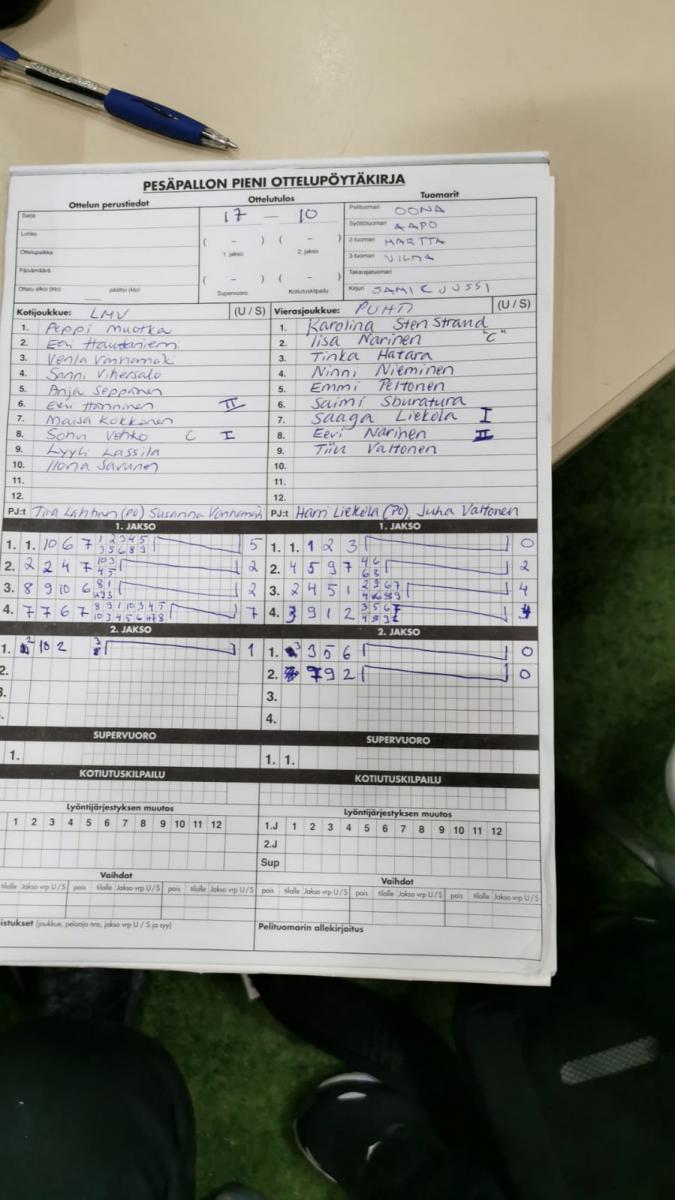 PESÄPALLON PIENI OTTELUPÖYTÄKIRJA
Ottelun perustiedot Ottelutulos Tuomarit
Sarja
Lohko
Ottelupaikka
Päivämäärä
Ottelu alkoi (klo) päättyi (klo)
17 – 10
( – ) ( – )
1. jakso 2. jakso
( – ) ( – )
Supervuoro Kotiutuskilpailu
Pelituomari OONA
Syöttötuomari AAPO
2-tuomari MARTTA
3-tuomari VILMA
Takarajatuomari
Kirjuri SAMI & JUSSI
Kotijoukkue: LMV (U / S)
1. Peppi Muotka
2. Eeri
3. Venla Vanhamäki
4. Sanni Vihersalo
5. Anja Seppänen
6. Eeri Hänninen II
7. Maisa Kokkonen
8. C I
9. Lyyli Lassila
10. Ilona Savunen
11.
12.
PJ:t Tiia (PO) Susanna Vanhamäki
Vierasjoukkue: PUHTI (U / S)
1. Karolina Stenstrand
2. Iisa Narinen "C"
3. Tinka Hatara
4. Ninni Nieminen
5. Emmi Peltonen
6. Saimi
7. Saaga Liekola I
8. Eevi Narinen II
9. Tiiu Valtonen
10.
11.
12.
PJ:t Harri Liekola (PO), Juha Valtonen
1. JAKSO
1. 1. 10 6 7 5
2. 2 2 4 7 2
3. 8 9 10 6 2
4. 7 7 6 7 7
1. JAKSO
1. 1. 1 2 3 0
2. 4 5 9 7 2
3. 2 4 5 1 4
4. 3 9 1 2
2. JAKSO
1. 10 2 1
2.
3.
2. JAKSO
1. 3 5 6 0
2. 7 9 2 0
3.
4.
SUPERVUORO
1.
SUPERVUORO
1. 1.
KOTIUTUSKILPAILU
KOTIUTUSKILPAILU
Lyöntijärjestyksen muutos
1 2 3 4 5 6 7 8 9 10 11 12
Lyöntijärjestyksen muutos
1.J 1 2 3 4 5 6 7 8 9 10 11 12
2.J
Sup
Vaihdot
tilalle Jakso vrp U/S pois tilalle Jakso vrp U/S pois tilalle Jakso vrp U/S
Vaihdot
pois tilalle Jakso vrp U/S pois tilalle Jakso vrp U/S pois tilalle Jakso vrp U/S
istukset (joukkue, pelaaja nro, jakso vrp U / S ja syy)
Pelituomarin allekirjoitus